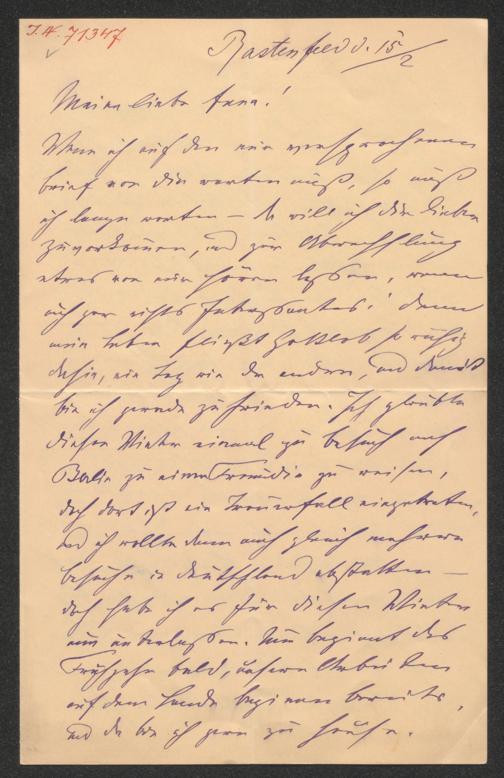 I.N. 71347
Rastenfeld d. 15/2
Meine liebe Anna!
Wenn ich auf den mir versprochenen
Brief von Dir warten muß, so muß
ich lange warten — da will ich Dir lieber
zuvorkommen, und zur Abwechslung
etwas von mir hören lassen, wenn
auch gar nichts Interessantes! denn
mein Leben fließt Gottlob so ruhig
dahin, ein Tag wie der andere, und damit
bin ich gerade zufrieden. Ich glaubte
diesen Winter einmal zu Besuch nach
Berlin zu einer Freundin zu reisen,
doch dort ist ein Trauerfall eingetreten,
und ich wollte dann auch gleich mehrere
Besuche in Deutschland abstatten —
doch habe ich es für diesen Winter
nun unterlassen. Nun beginnt das
Frühjahr bald, unsere Arbeiten
auf dem Lande beginnen bereits,
und da bin ich gern zu Hause.